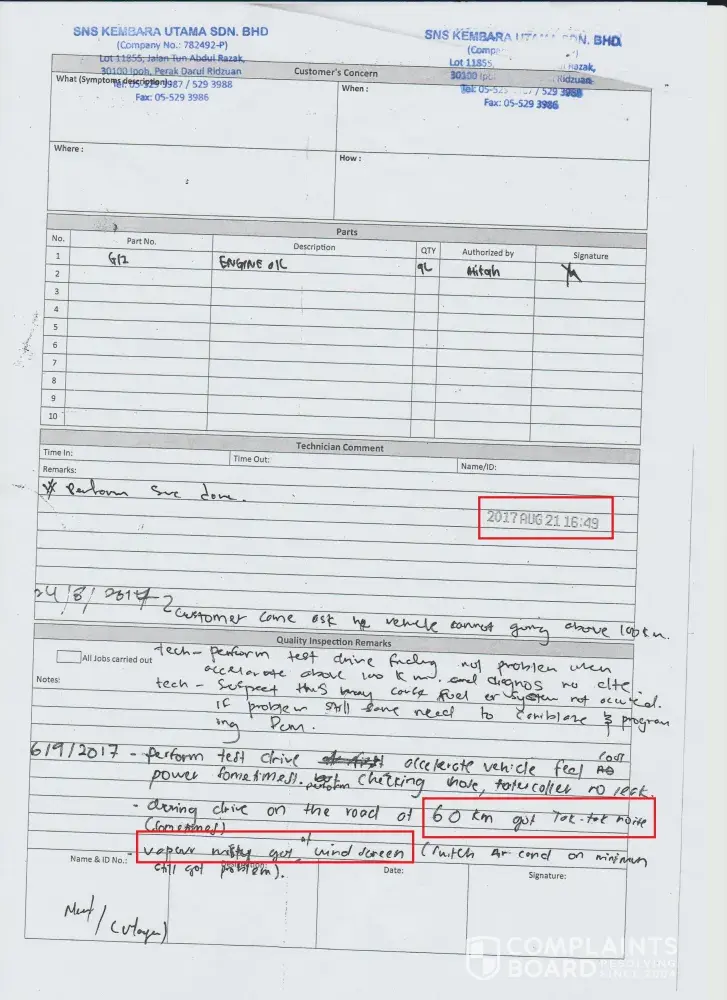 SNS KEMBARA UTAMA SDN. BHD
(Company No.: 782492-P)
Lot 11855, Jalan Tun Abdul Razak,
30100 Ipoh, Perak Darul Ridzuan
Tel: 05-529 3987 / 529 3988
Fax: 05-529 3986
SNS KEMBARA UTAMA SDN. BHD
(Comp
Lot 11855, Razak,
30100 Ipoh, Ridzuan
Tel: 05-52 / 529 3988
Fax: 05-529 3986
Customer's Concern
What (Symptoms description):
When :
Where :
How :
Parts
No. Part No. Description QTY Authorized by Signature
1 G12 ENGINE OIL 9L
2
3
4
5
6
7
8
9
10
Technician Comment
Time In: Time Out: Name/ID:
Remarks:
perform svc done.
2017 AUG 21 16:49
24/8/2017
Customer come ask vehicle cannot going above 100km.
Quality Inspection Remarks
All Jobs carried out
Notes:
tech - perform test drive finding not problem when
accelerate above 100 km. and diagnos no
tech - suspect this may cause fuel or system not
if problem still same need to & program
ing Pcm.
6/9/2017 - perform test drive accelerate vehicle feel lost
power sometimes. perform checking hose, no leak.
- during drive on the road at 60 km got Tok-tok noise
(sometimes)
- vapour misty got at wind screen (switch Air cond on minimum
still got problem).
Name & ID No.: Date: Signature: